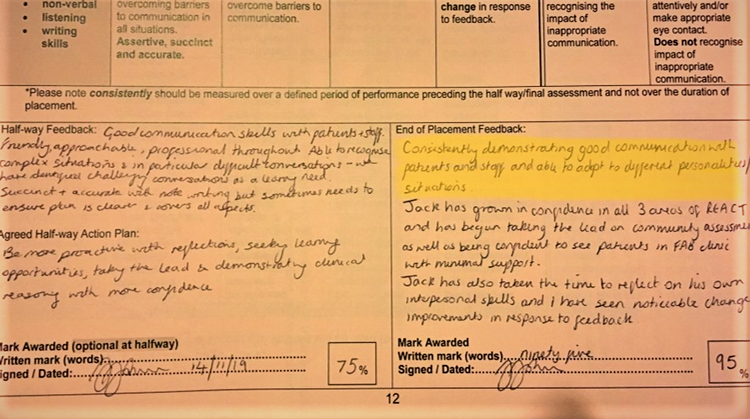 non-verbal
listening
writing
skills
overcoming barriers
to communication in
all situations.
Assertive, succinct
and accurate.
overcome barriers to
communication.
change in response
to feedback.
recognising the
impact of
inappropriate
communication.
attentively and/or
make appropriate
eye contact.
Does not recognise
impact of
inappropriate
communication.
*Please note consistently should be measured over a defined period of performance preceding the half way/final assessment and not over the duration of
placement.
Half-way Feedback: Good communication skills with patients + staff.
Friendly, approachable, professional throughout. Able to recognise
complex situations & in particular difficult conversations - we
have challenging conversations as a learning need.
Succinct + accurate with note writing but sometimes needs to
ensure plan is clear & covers all aspects.
Agreed Half-way Action Plan:
Be more proactive with reflections, seeking learning
opportunities, taking the lead & demonstrating clinical
reasoning with more confidence
Mark Awarded (optional at halfway)
Written mark (words)
Signed / Dated: 14/11/19
75%
End of Placement Feedback:
Consistently demonstrating good communication with
patients and staff and able to adapt to different personalities/
situations.
Jack has grown in confidence in all 3 areas of REACT
and has begun taking the lead on community assessments
as well as being confident to see patients in FAB clinic
with minimal support.
Jack has also taken the time to reflect on his own
interpersonal skills and I have seen noticeable change
improvements in response to feedback.
Mark Awarded
Written mark (words) ninety five
Signed / Dated:
95%
12